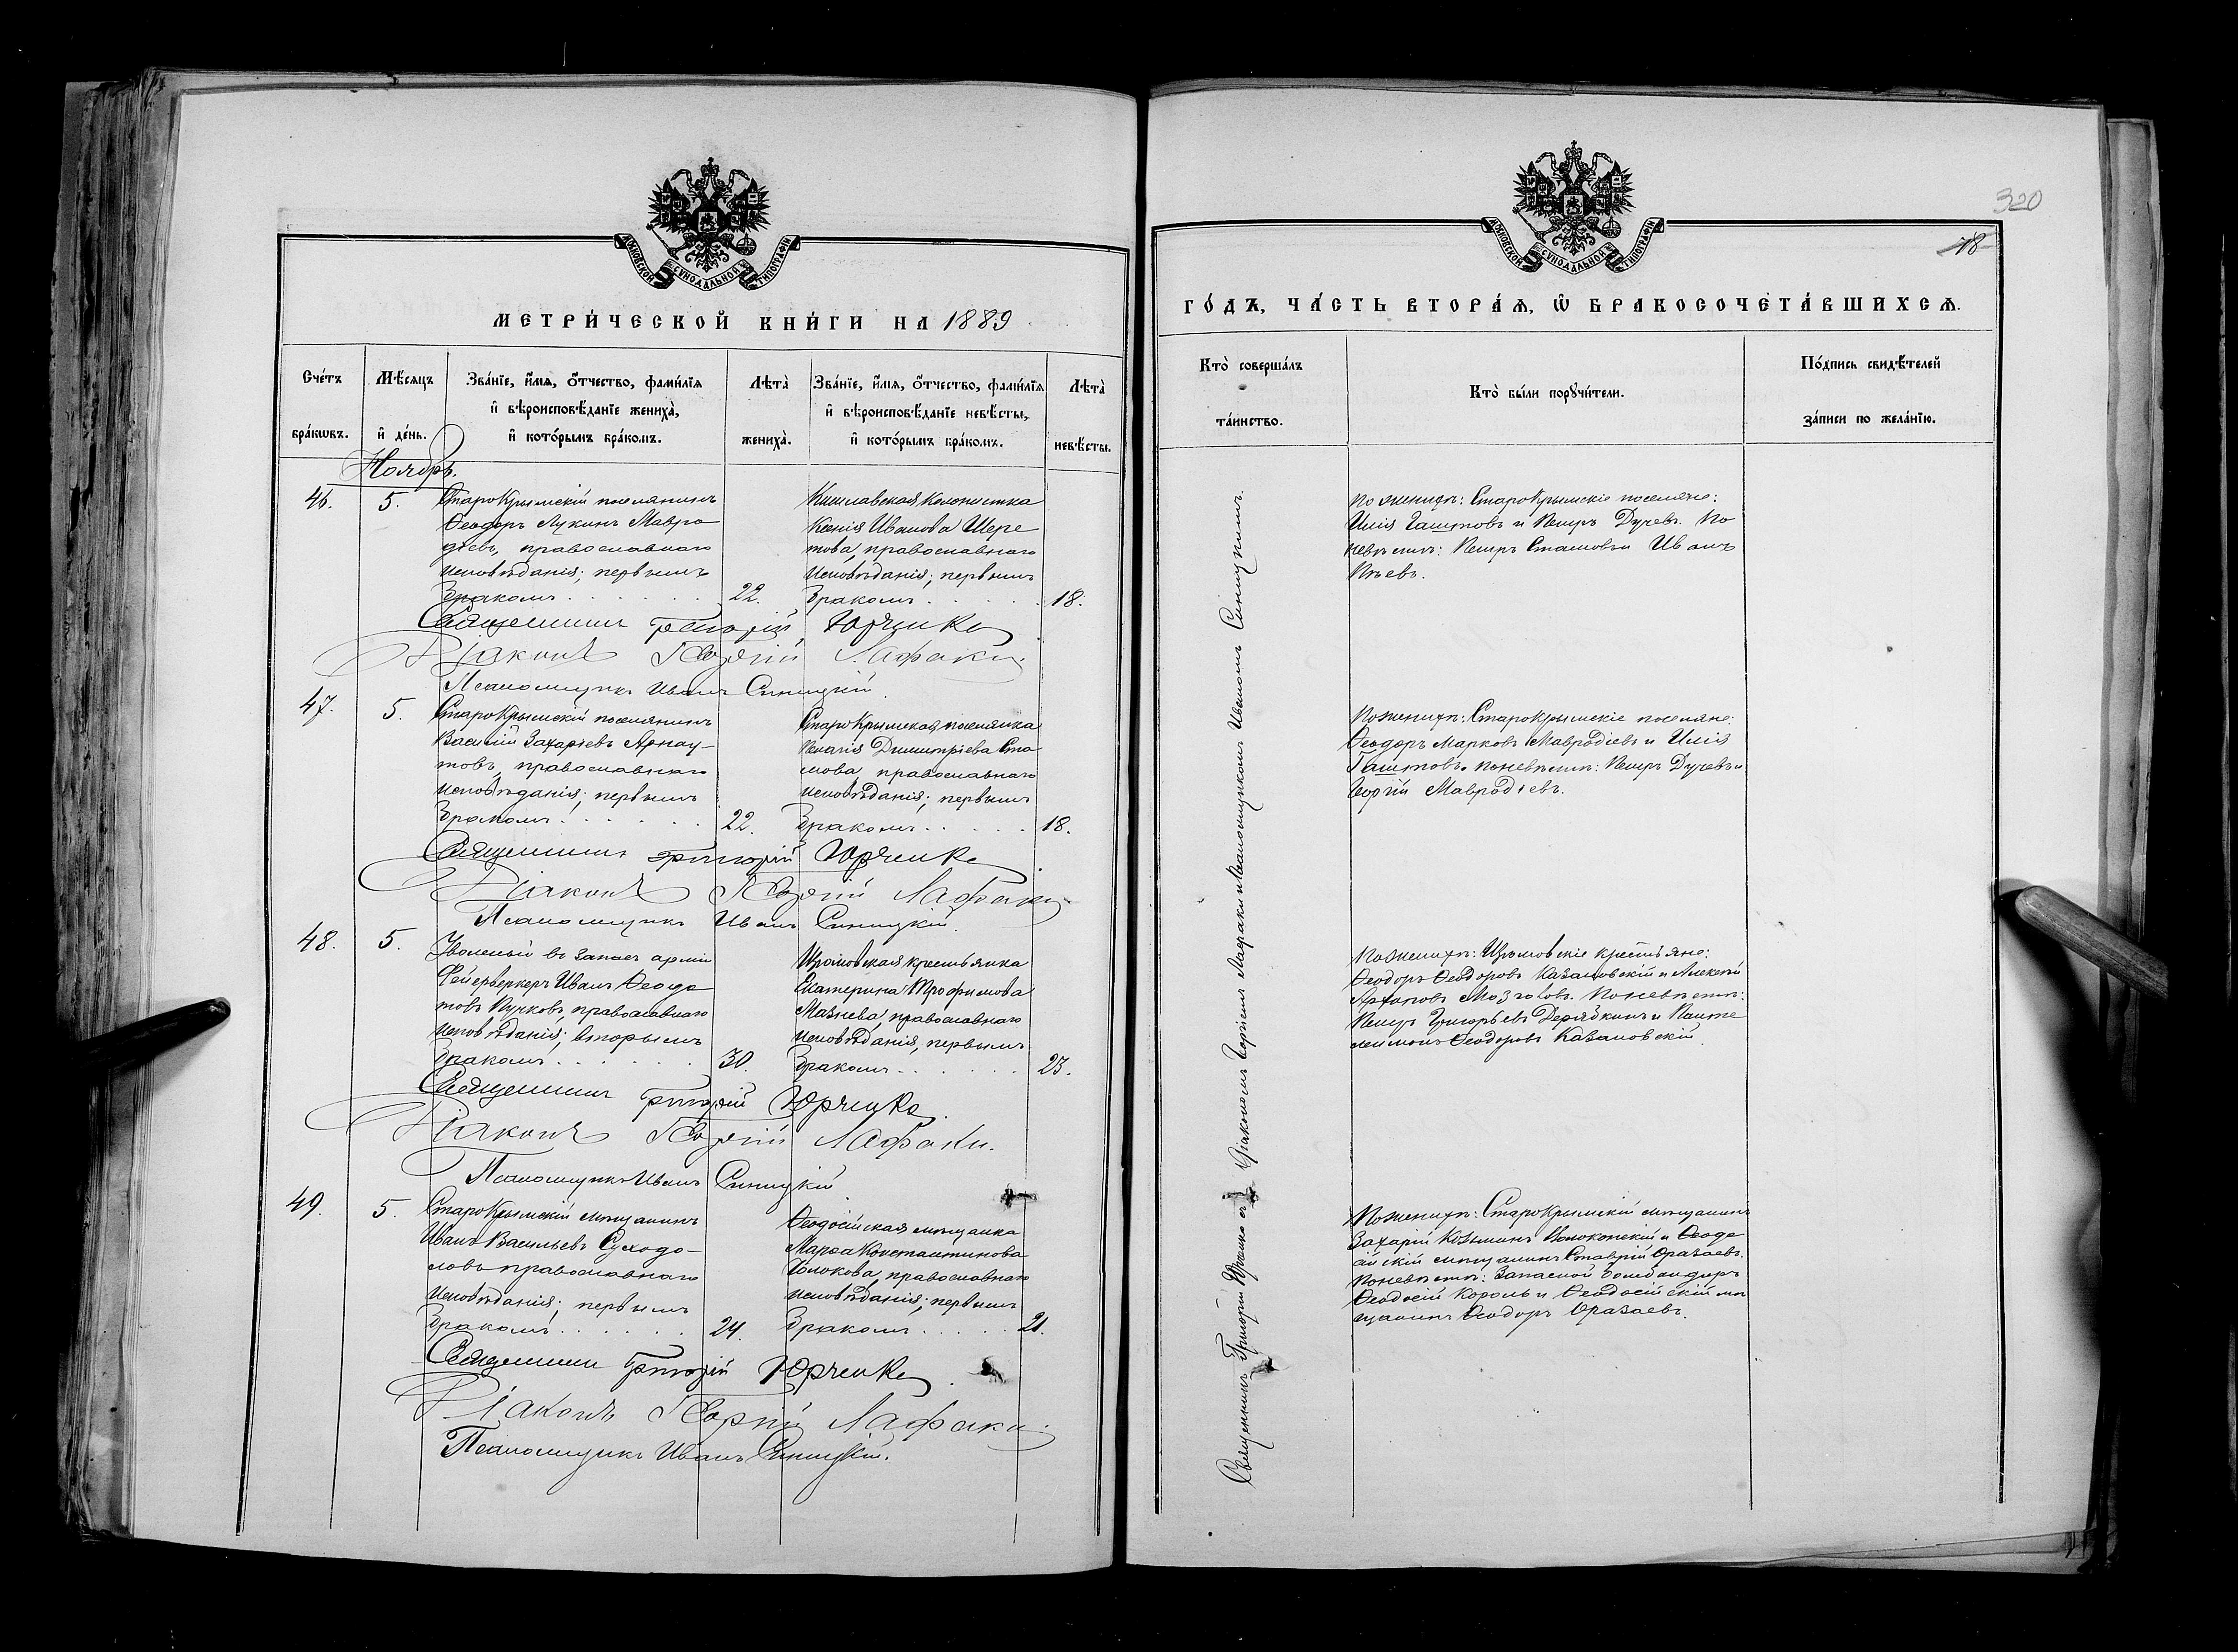 МОСКОВСКОЙ СѴНОДАЛЬНОЙ ТИПОГРАФІИ
МЕТРИ́ЧЕСКОЙ КНИ́ГИ НА 1889
Сче́тъ бра́кѡвъ.
Мѣ́сяцъ и҆ де́нь.
Зва́нїе, и҆́мѧ, ѻ҆́тчество, фами́лїѧ
и҆ вѣроисповѣ́данїе жениха̀,
и҆ кото́рымъ бра́комъ.
Лѣта̀ жениха̀.
Зва́нїе, и҆́мѧ, ѻ҆́тчество, фами́лїѧ
и҆ вѣроисповѣ́данїе невѣ́сты,
и҆ кото́рымъ бра́комъ.
Лѣта̀ невѣ́сты.
Ноябрь.
46. 5.
Старокрымскій поселянинъ
Ѳеодоръ Лукинъ Мавро
діевъ, православнаго
исповѣданія; первымъ
бракомъ . . . . . . 22.
Кишлавская колонистка
Ксенія Иванова Шере
това, православнаго
исповѣданія; первымъ
бракомъ . . . . . 18.
Священникъ Григорій Юрченко
Діаконъ Георгій Лафаки
Псаломщикъ Иванъ Синицкій.
47. 5.
Старокрымскій поселянинъ
Василій Захаріевъ Арнау-
товъ, православнаго
исповѣданія; первымъ
бракомъ . . . . . . 22.
Старокрымская поселянка
Пелагія Димитріева Ста
мова, православнаго
исповѣданія; первымъ
бракомъ . . . . . 18.
Священникъ Григорій Юрченко
Діаконъ Георгій Лафаки
Псаломщикъ Иванъ Синицкій.
48. 5.
Уволеный въ запасъ арміи
Фейерверкеръ Иванъ Ѳеодо
товъ Пучковъ, православнаго
исповѣданія; вторымъ
бракомъ . . . . . . 30.
крестьянка
Екатерина Трофимова
Мазнева, православнаго
исповѣданія, первымъ
бракомъ . . . . . . 23.
Священникъ Григорій Юрченко.
Діаконъ Георгій Лафаки.
Псаломщикъ Иванъ Синицкій
49. 5.
Старокрымскій мѣщанинъ
Иванъ Васильевъ Суходо-
ловъ православнаго
исповѣданія; первымъ
бракомъ . . . . . . 24.
Ѳеодосійская мѣщанка
Марѳа Константинова
православнаго
исповѣданія; первымъ
бракомъ . . . . . 21.
Священникъ Григорій Юрченко.
Діаконъ Георгій Лафаки
Псаломщикъ Иванъ Синицкій.
320
18
МОСКОВСКОЙ СѴНОДАЛЬНОЙ ТИПОГРАФІИ
ГО́ДЪ, ЧА́СТЬ ВТОРА́Ѧ, Ѡ҆ БРАКОСОЧЕТА́ВШИХСѦ.
Кто̀ соверша́лъ
та́инство.
Кто̀ бы́ли порꙋчи́тели.
По́дпись свидѣ́телей
за́писи по жела́нїю.
Священникъ Григорій Юрченко съ Діакономъ Георгіемъ Лафаки и Псаломщикомъ Иваномъ Синицкимъ.
По женихѣ: Старокрымскіе поселяне:
Илія Гаштовъ и Петръ Дучевъ. По
невѣстѣ: Петръ Стамовъ и Иванъ
По женихѣ: Старокрымскіе поселяне:
Ѳеодоръ Марковъ Мавродіевъ и Илія
Гаштовъ. по невѣстѣ: Петръ Дучевъ и
Георгій Мавродіевъ.
По женихѣ: крестьяне:
Ѳеодоръ Ѳеодоровъ Казановскій и Алексѣй
По невѣстѣ:
Петръ Григорьевъ и Панте
леимонъ Ѳеодоровъ Казановскій.
По женихѣ: Старокрымскій мѣщанинъ
Захарій Козьминъ и Ѳеодо
сійскій мѣщанинъ Ставрій Фразаевъ.
По невѣстѣ: Запасной бомбандиръ
Ѳеодосій Король и Ѳеодосійскій мѣ
щанинъ Ѳеодоръ Фразаевъ.